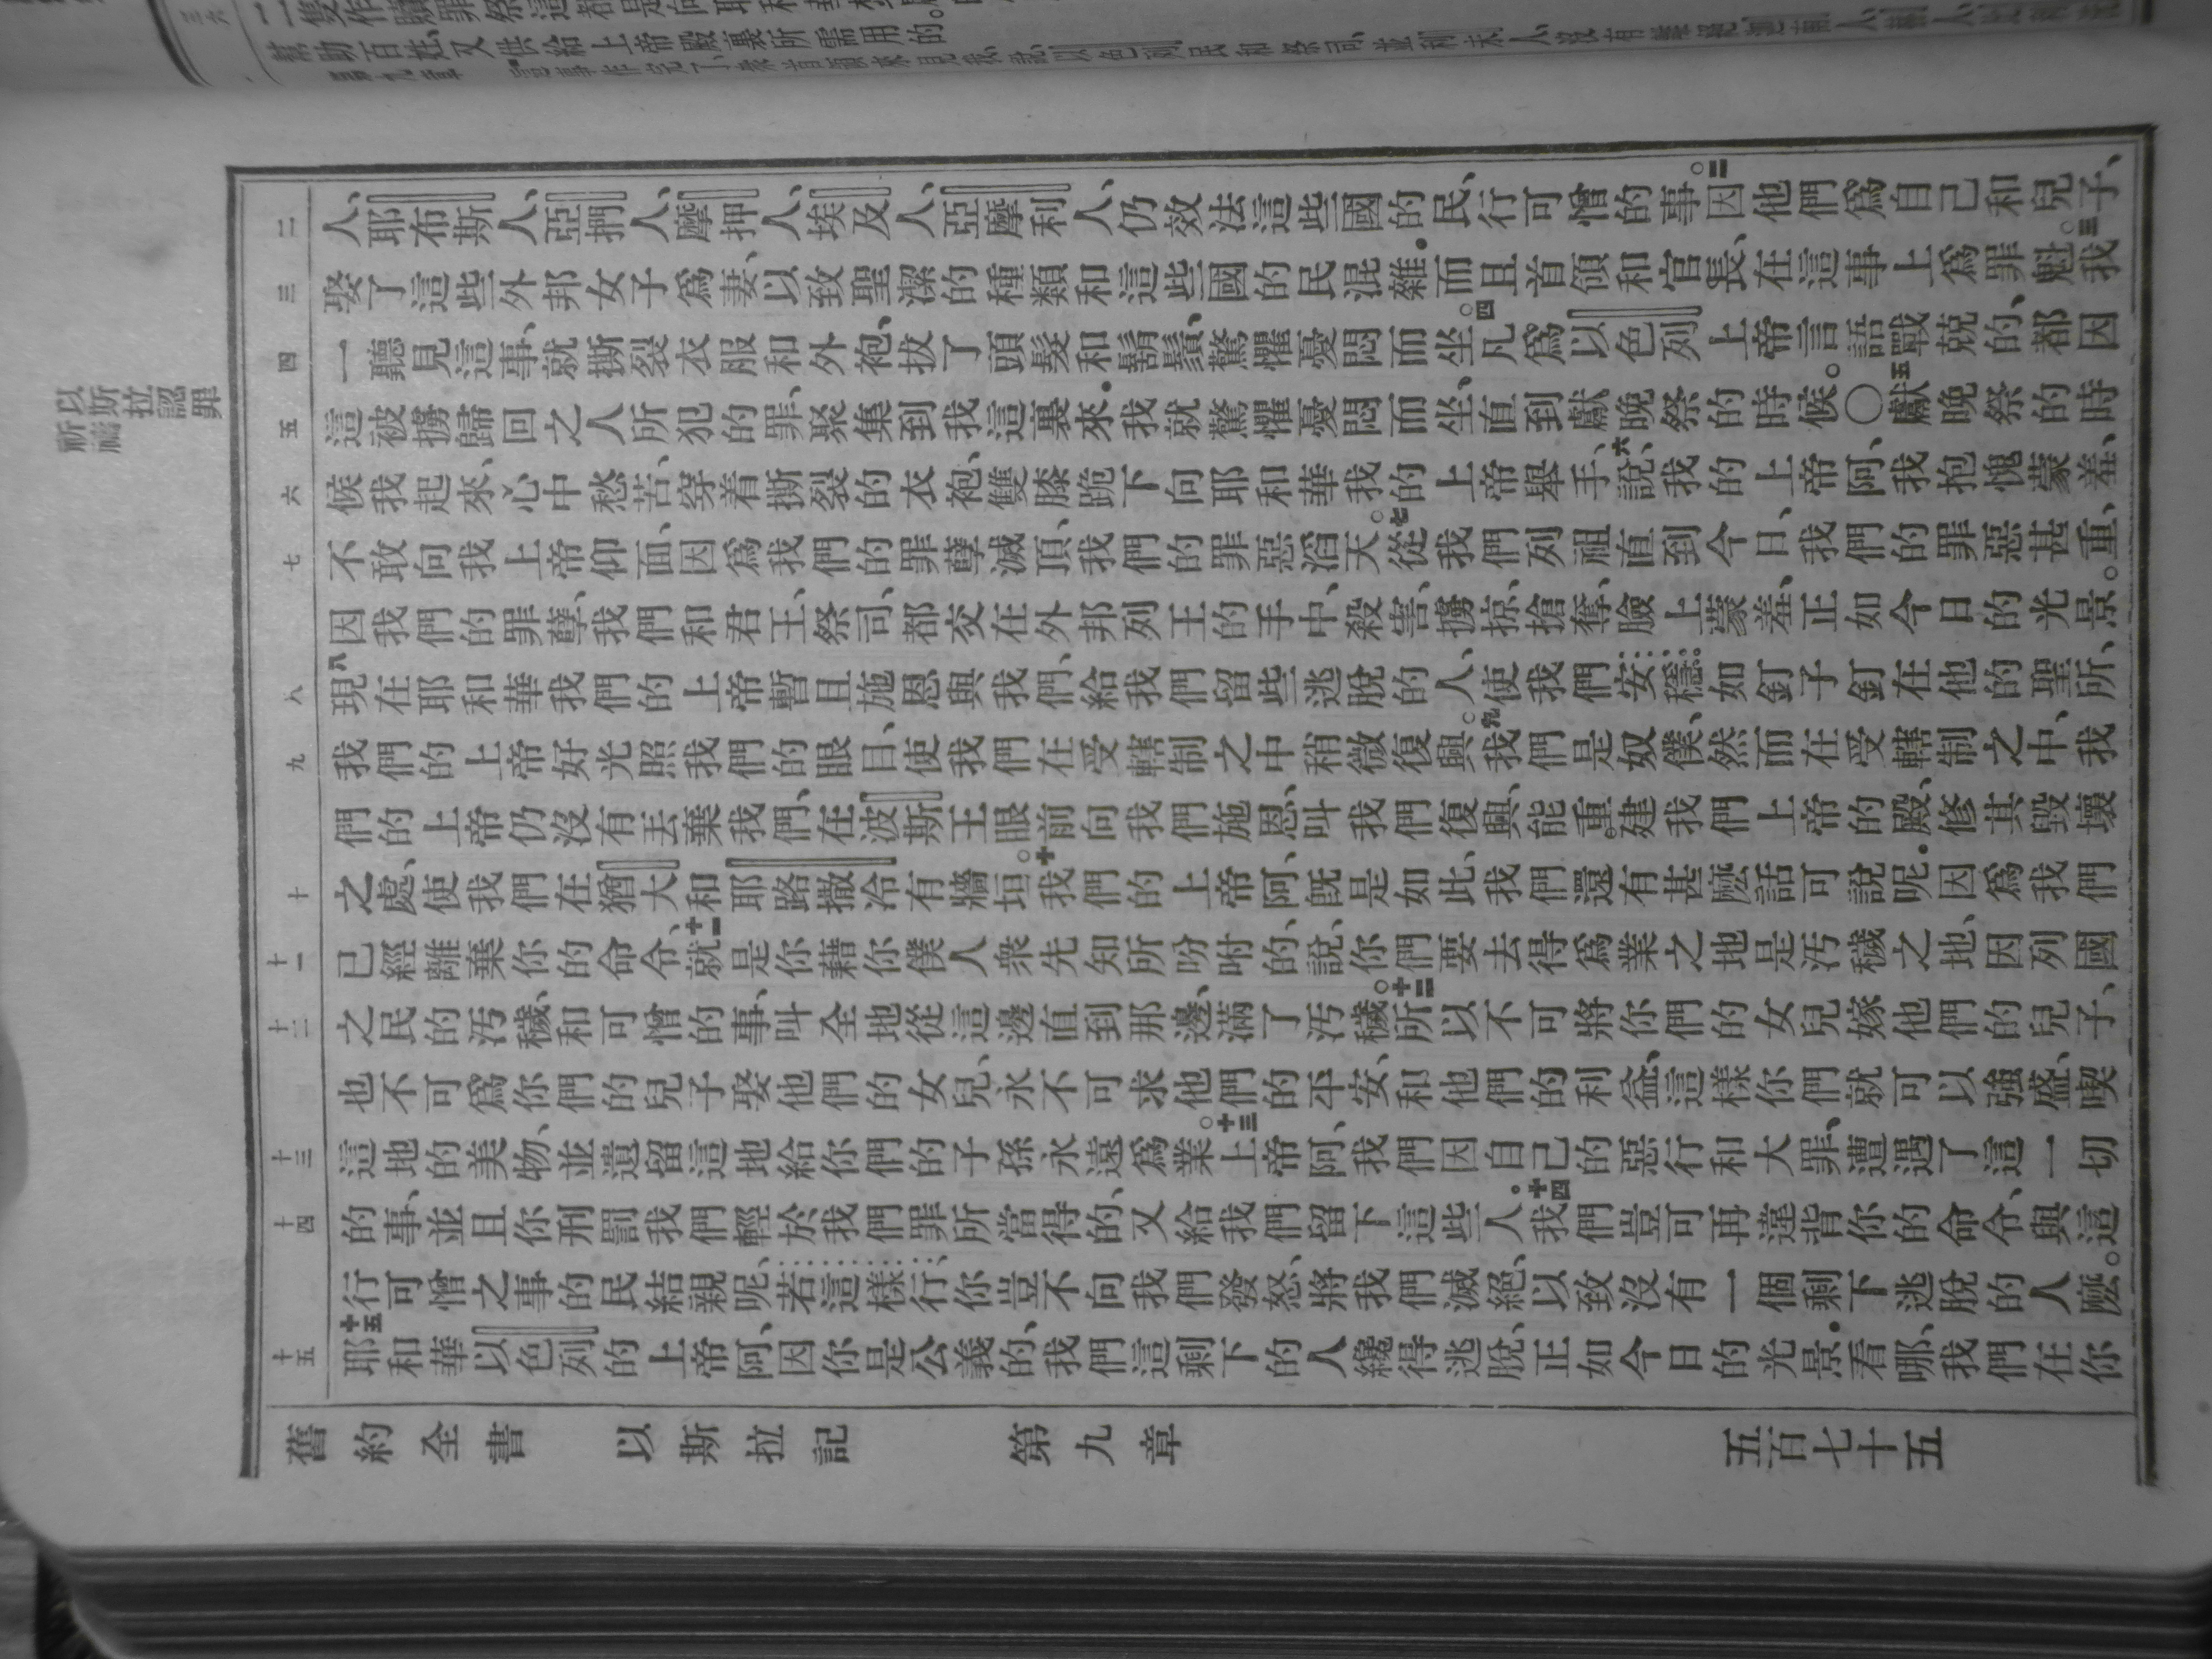 幫助百姓、又供給上帝殿裏所需用的。
以斯拉認罪
祈禱
人、耶布斯人、亞捫人、摩押人、埃及人、亞摩利人、仍效法這些國的民、行可憎的事。二因他們爲自己和兒子、
娶了這些外邦女子爲妻、以致聖潔的種類和這些國的民混雜.而且首領和官長、在這事上爲罪魁。三我
一聽見這事、就撕裂衣服和外袍、拔了頭髮和鬍鬚、驚懼憂悶而坐。四凡爲以色列上帝言語戰兢的、都因
這被擄歸回之人所犯的罪、聚集到我這裏來.我就驚懼憂悶而坐、直到獻晚祭的時候。〇五獻晚祭的時
候我起來、心中愁苦、穿着撕裂的衣袍、雙膝跪下向耶和華我的上帝舉手、六說、我的上帝阿、我抱愧蒙羞、
不敢向我上帝仰面、因爲我們的罪孽滅頂、我們的罪惡滔天。七從我們列祖直到今日、我們的罪惡甚重、
因我們的罪孽、我們和君王、祭司、都交在外邦列王的手中、殺害、擄掠、搶奪、臉上蒙羞、正如今日的光景。
八現在耶和華我們的上帝暫且施恩與我們、給我們留些逃脫的人、使我們安穩。如釘子釘在他的聖所、
我們的上帝好光照我們的眼目、使我們在受轄制之中稍微復興。九我們是奴僕、然而在受轄制之中、我
們的上帝仍沒有丟棄我們、在波斯王眼前向我們施恩、叫我們復興、能重建我們上帝的殿、修其毀壞
之處、使我們在猶大和耶路撒冷有牆垣。十我們的上帝阿、旣是如此、我們還有甚麽話可說呢.因爲我們
已經離棄你的命令、十一就是你藉你僕人衆先知所吩咐的、說、你們要去得爲業之地是污穢之地、因列國
之民的污穢、和可憎的事、叫全地從這邊直到那邊、滿了污穢。十二所以不可將你們的女兒嫁他們的兒子、
也不可爲你們的兒子娶他們的女兒、永不可求他們的平安、和他們的利益、這樣你們就可以強盛、喫
這地的美物、並遺留這地給你們的子孫永遠爲業。十三上帝阿、我們因自己的惡行和大罪、遭遇了這一切
的事、並且你刑罰我們輕於我們罪所當得的、又給我們留下這些人。十四我們豈可再違背你的命令、與這
行可憎之事的民結親呢、若這樣行、你豈不向我們發怒、將我們滅絕、以致沒有一個剩下逃脫的人麽。
十五耶和華以色列的上帝阿、因你是公義的、我們這剩下的人纔得逃脫、正如今日的光景.看哪、我們在你
二
三
四
五
六
七
八
九
十
十一
十二
十三
十四
十五
舊約全書 以斯拉記 第九章 五百七十五